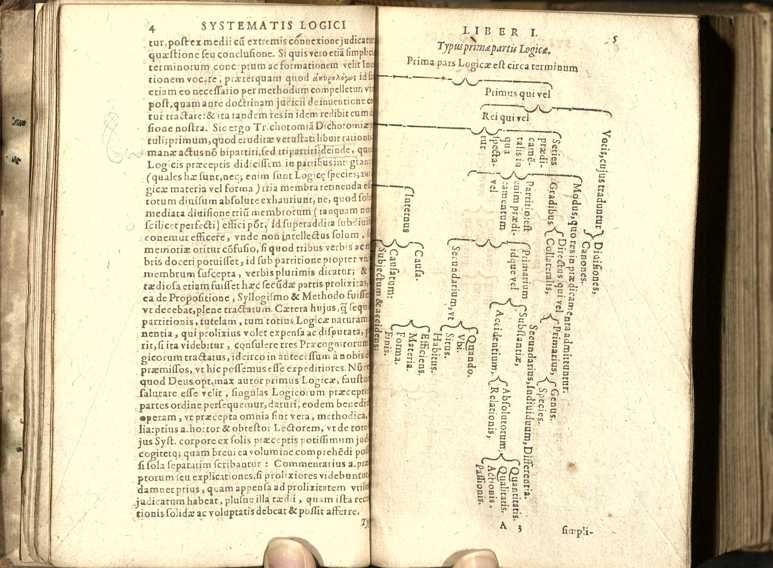 4 SYSTEMATIS LOGICI
tur, post ex medii cū extremis cōnexione judicatur
quæstione seu conclusione. Si quis vero etiā simplicium
terminorum conceptum ac formationem velit
tionem vocare, præterquam quod ἀκυρολόγως id
etiam eo necessario per methodum compelletur, vt
post, quam ante doctrinam judicii de inventione
tur tractare: & ita tandem res in idem redibit cum
sione nostra. Sic ergo Trichotomiā Dichotomiæ
tulis primum, quod eruditæ vetustati libuit
manæ actus nō bipartiti, sed tripartiti; deinde, quod
Logicis præceptis didicissem in partibus integrantibus
(quales hæ sunt, nec enim sunt Logicæ species,
gicæ materia vel forma) tria membra retinenda
totum divisum absolute exhauriunt, ne, quod
mediata divisione triū membrorum (tanquam
scilicet perfecti) effici pōt, id superaddita
conemur efficere, vnde non intellectus solum,
memoriæ oritur cōfusio, si quod tribus verbis
bris doceri potuisset, id sub partitione propter
membrum suscepta, verbis plurimis dicatur; &
tædiosa etiam fuisset hæc secūdæ partis prolixitas,
ea de Propositione, Syllogismo & Methodo fuisset,
vt decebat, plene tractatum. Cætera hujus,
partitionis, tutelam, tum totius Logicæ naturam
nentia, qui prolixius volet expensa ac disputata,
rit, si ita videbitur, consulere tres Præcognitorum
gicorum tractatus, idcirco in antecessum à nobis
præmissos, vt hic possemus esse expeditiores.
quod Deus opt. max autor primus Logicæ, faustum
salutare esse velit, singulas Logicorum præceptis
partes ordine persequemur, daturi, eodem
operam, vt præcepta omnia sint vera, methodica,
lia: ptius adhortor & obtestor Lectorem, vt de toto
jus Syst. corpore ex solis præceptis potissimum
cogitet; quam brevi ea volumine comprehēdi
si sola separatim scribantur: Commentarius a. præ
ptorum seu explicationes, si prolixiores videbuntur
damnet prius, quam appensa ad prolixitatem
judicatum habeat, plusne illa tædii, quam ista
tionis solidæ ac voluptatis debeat & possit afferre.
LIBER I. 5
Typus primæ partis Logicæ.
Prima pars Logicæ est circa terminum
Primus qui vel
Rei qui vel
Vocis, cujus traduntur
Divisiones,
Canones.
Series
prædi-
camē-
talis in
qua
specta-
tur
Modus, quo res in prædicamenta admittuntur.
Gradibus
Directus, qui vel
Collateralis,
Primarius,
Genus.
Species.
Secundarius, Individuum, Differentia.
Partitio; est
enim prædi-
camentum
vel
Primarium
idque vel
Substantiæ,
Accidentium,
Absolutorum
Quantitatis.
Qualitatis.
Relationis,
Actionis.
Passionis.
Secundarium, vt
Quando.
Vbi.
Situs.
Habitus.
Internus
Causa.
Efficiens.
Materia.
Forma.
Finis.
Causatum:
Subjectum & accidens
A 3 simpli-